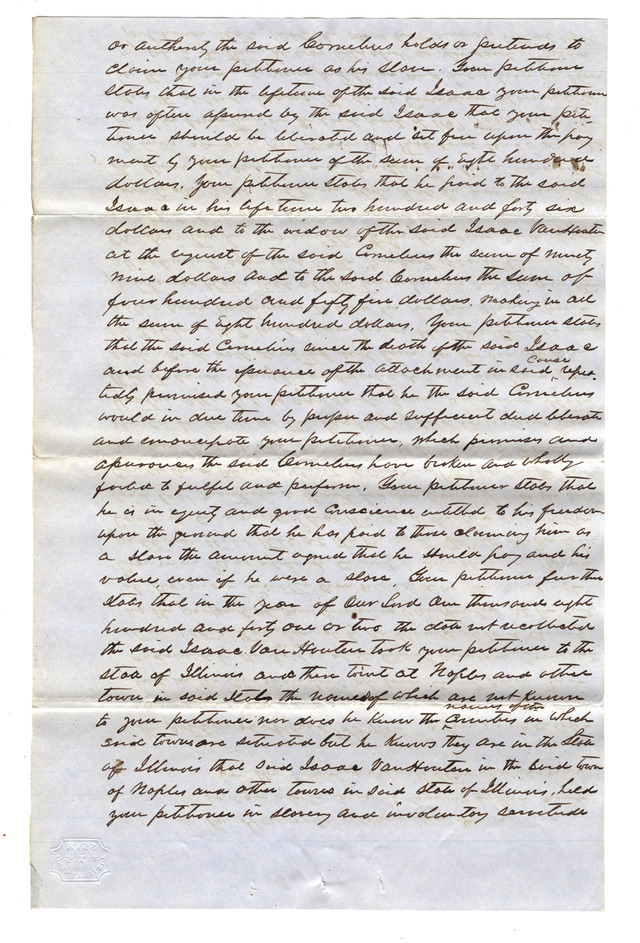 or authority the said Cornelius holds or pretends to
claim your petitioner as his slave. Your petitioner
states that in the lifetime of the said Isaac your petitioner
was often assured by the said Isaac that your peti-
tioner should be liberated and set free upon the pay
ment by your petitioner of the sum of Eight hundred
dollars. Your petitioner states that he paid to the said
Isaac in his life time two hundred and forty six
dollars and to the widow of the said Isaac VanHouten
at the request of the said Cornelius the sum of ninety
nine dollars and to the said Cornelius the sum of
four hundred and fifty five dollars, making in all
the sum of Eight hundred dollars. Your petitioner states
that the said Cornelius since the death of the said Isaac
and before the issuance of the attachment in said cause repea-
tedly promised your petitioner that he the said Cornelius
would in due time by proper and sufficient deed liberate
and emancipate your petitioner, which promises and
assurances the said Cornelius have broken and wholly
failed to fulfil and perform. Your petitioner states that
he is in equity and good conscience entitled to his freedom
upon the ground that he has paid to those claiming him as
a slave the amount agreed that he should pay and his
value, even if he were a slave. Your petitioner further
states that in the year of Our Lord One thousand eight
hundred and forty one or two the date not recollected
the said Isaac Van Houten took your petitioner to the
state of Illinois and then to wit at Naples and other
town in said State the names of which are not known
to your petitioner nor does he know the names of the Counties in which
said towns are situated but he knows they are in the State
of Illinois that said Isaac VanHouten in the said town
of Naples and other towns in said state of Illinois, held
your petitioner in slavery and involuntary servitude